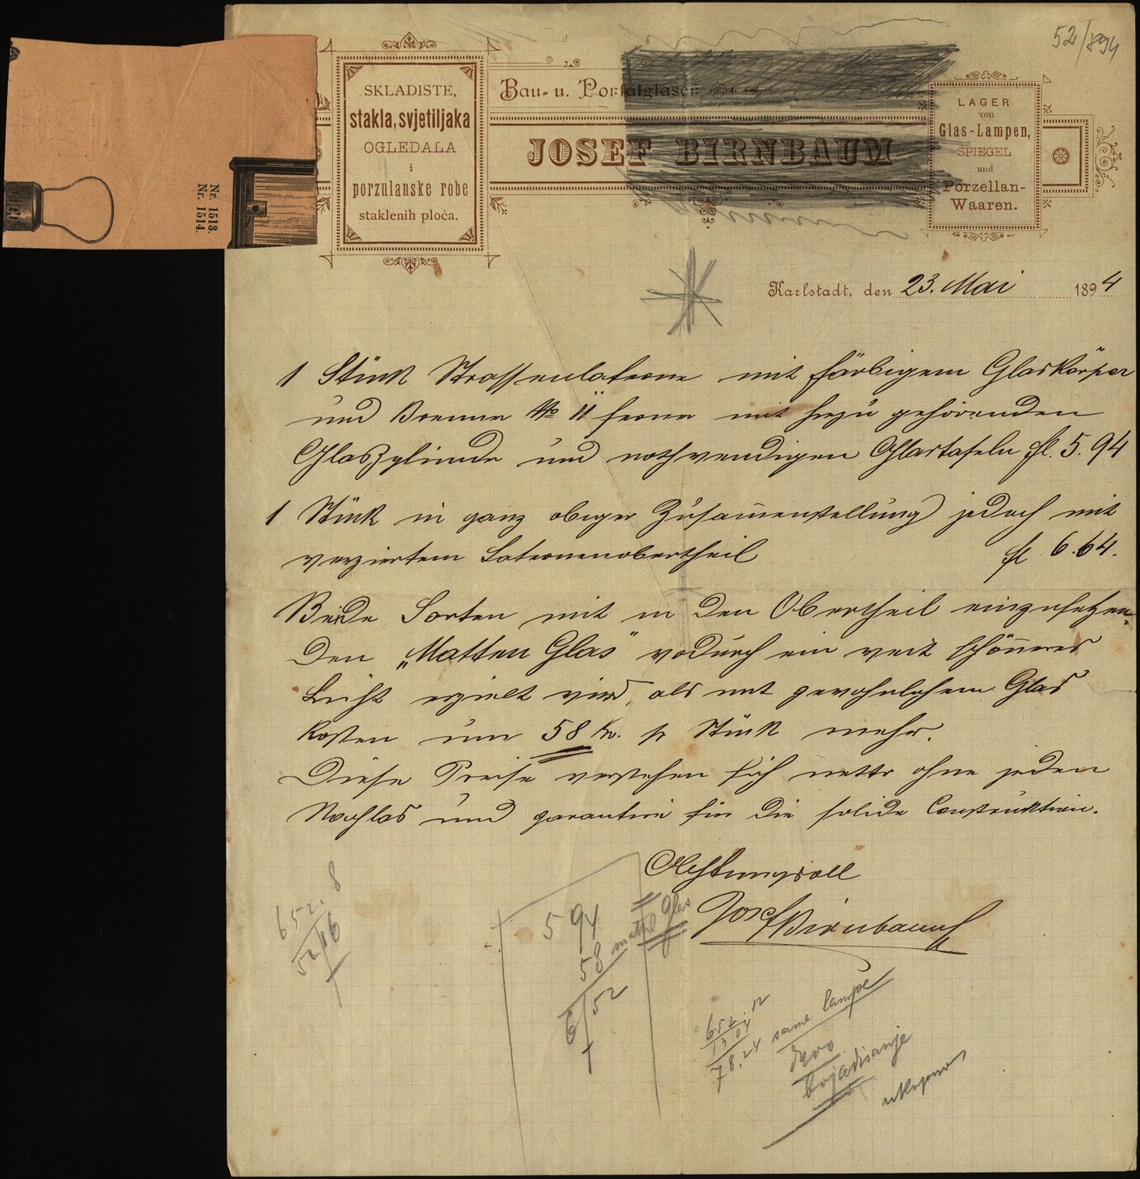 52/894
SKLADISTE,
stakla, svjetiljaka
OGLEDALA
i
porzulanske robe
staklenih ploča.
Bau- u. Portalglaser
JOSEF BIRNBAUM
LAGER
von
Glas-Lampen,
SPIEGEL
und
Porzellan-
Waaren.
Nr. 1513.
Nr. 1514.
Karlstadt, den 23. Mai 1894
1 Stück Strassenlaterne mit färbigem Glaskörper
und Brenner No 11 ferner mit hiezu gehörenden
Glaszylinder und nothwendigen Glastafeln fl. 5.94
1 Stück in ganz obiger Zusammenstellung jedoch mit
verziertem Laternenobertheil fl 6.64.
Beide Sorten mit in den Obertheil einzusetzen
den „Matten Glas" wodurch ein weit schöneres
Licht erzielt wird, als mit gewöhnlichem Glas
kosten um 58 kr. pr Stück mehr.
Diese Preise verstehen sich netto ohne jeden
Nachlas und garantire für die solide Construktion.
Achtungsvoll
Josef Birnbaum
652. 8
52/16
594
58 matt Glas
6/52
652. 12
1304
78.24 same lampe
drvo
bojadisanje
ukupno